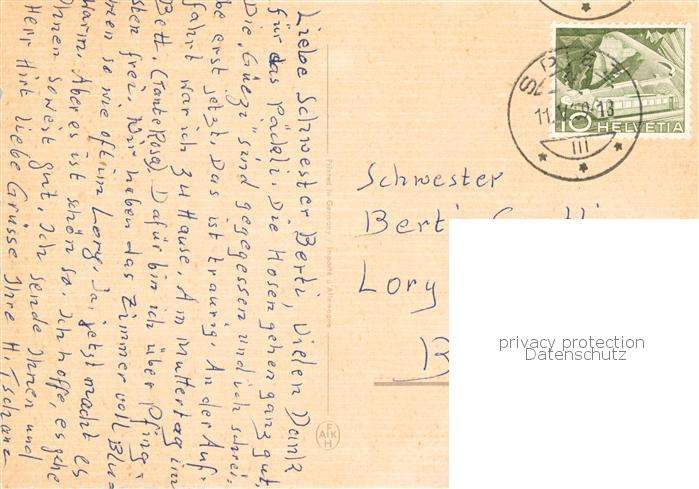 Liebe Schwester Berti, Vielen Dank
für das Päckli. Die Hosen gehen ganz gut.
Die „Güezi" sind gegegessen und ich schrei-
be erst jetzt. Das ist traurig. An der Auf-
fahrt war ich zu Hause. Am Muttertag im
Bett. (Tante Rosa). Dafür bin ich über Pfing-
sten frei. Wir haben das Zimmer voll Blu=
men so wie oft im Lory. Ja, jetzt macht es
warm. Aber es ist schön so. Ich hoffe, es gehe
Ihnen soweit gut. Ich sende Ihnen und
Herr Hirt liebe Grüsse Ihre H. Tschanz
Printed in Germany / Importé d'Allemagne
FAKH
SPIEZ
III
10 HELVETIA
Schwester
Berti
Lory
B
privacy protection
Datenschutz